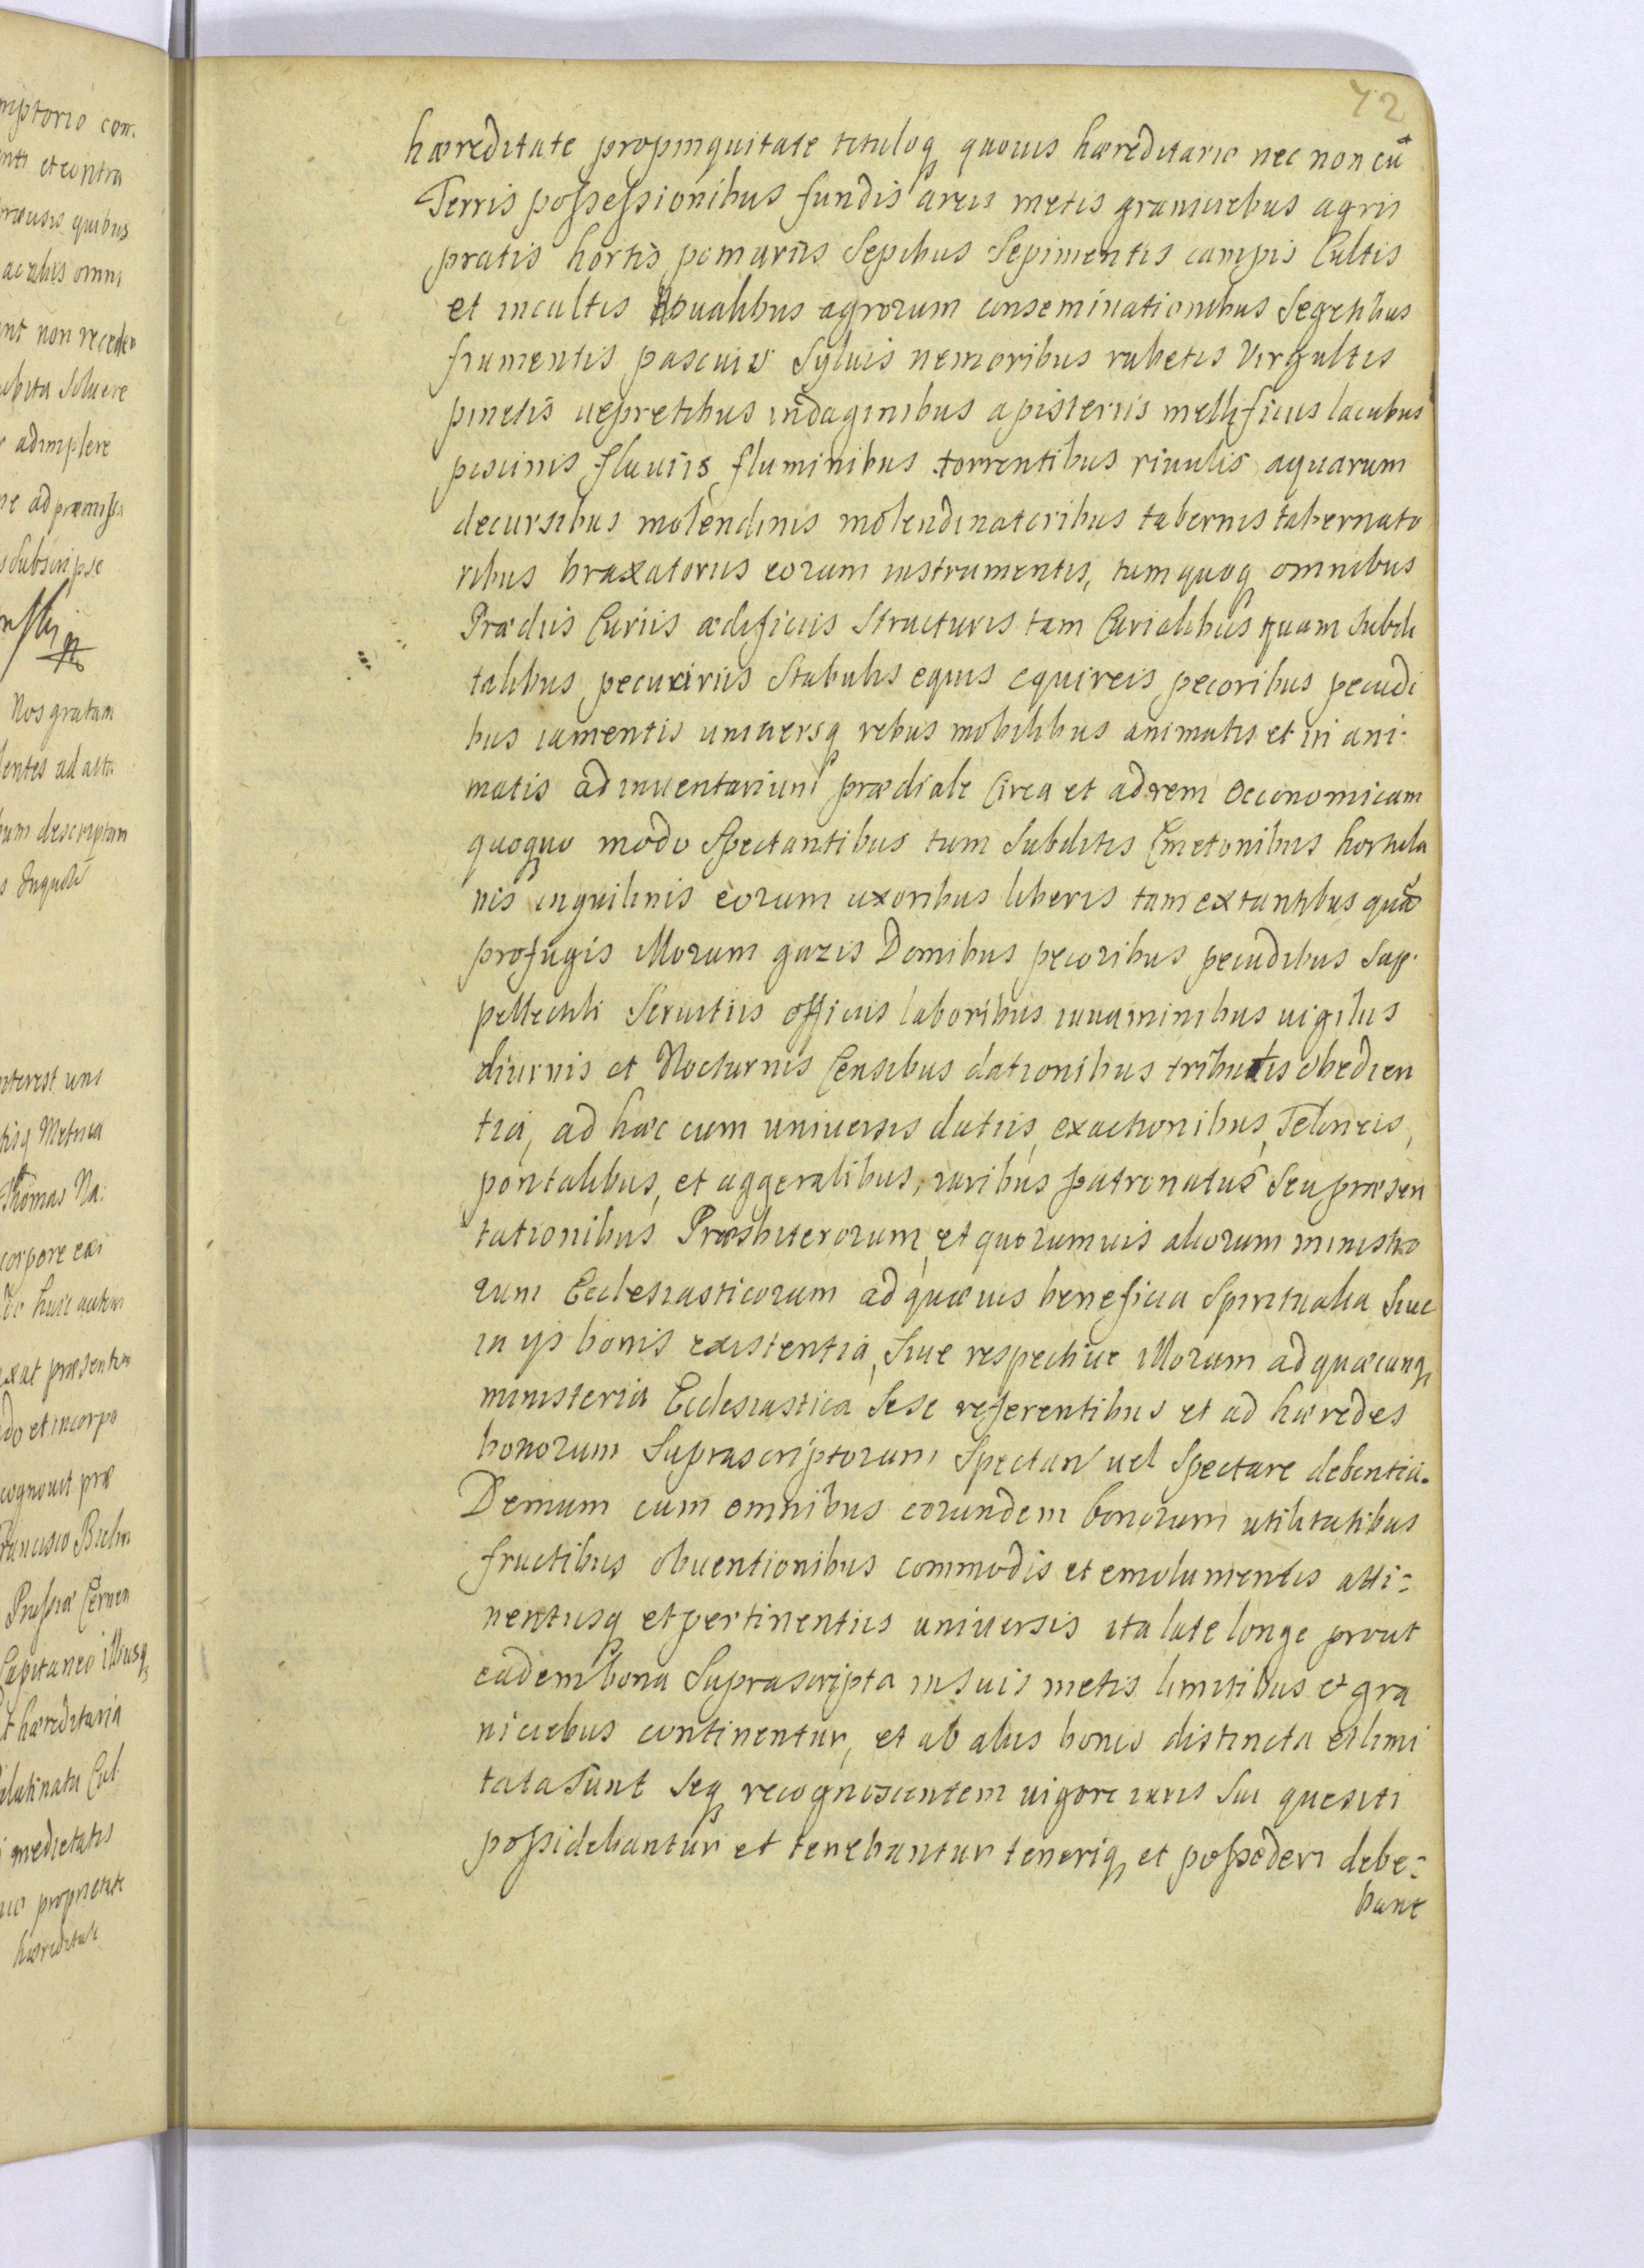 mptorio con-
enti et contra
quibus
omni
ent non receden
Soluere
adimplere
ne ad præmissa
Subscripse
Nos gratam
entes ad acta
um descriptam
nterest uni
Metrica
Thomas Na:
corpore
huic autem
præsentem
do et incorpo
cognouit præ
Francisco
Prussiæ
Capitaneo illiusq
t hæreditaria
Cul
medietatis
proprietate
hæreditate
72
hæreditate propinquitate tituloq quouis hæreditario nec non cũ
Terris possessionibus fundis areis metis graniciebus agris
pratis hortis pomariis Sepibus Sepimentis campis Cultis
et incultis Noualibus agrorum conseminationibus Segetibus
frumentis pascuis Syluis nemoribus rubetis Virgultis
pinetis uepretibus indaginibus apisteriis mellificiis lacubus
piscinis fluuiis fluminibus torrentibus riuulis aquarum
decursibus molendinis molendinatoribus tabernis tabernato
ribus braxatoriis eorum instrumentis, tum quoq omnibus
Prædiis Curiis ædificiis Structuris tam Curialibus quam Subdi
talibus pecuariis Stabulis equis equireis pecoribus pecudi
bus iumentis uniuersq rebus mobilibus animatis et in ani-
matis ad inuentarium prædiale Circa et ad rem oeconomicam
quoquo modo Spectantibus tum Subditis Cmetonibus hortula
nis inquilinis eorum uxoribus liberis tam extantibus quã
profugis illorum gazis Domibus pecoribus pecudibus Sup-
pellectili Seruitiis officiis laboribus iuuaminibus uigiliis
diurnis et Nocturnis Censibus dationibus tributis obedien
tia, ad hæc cum uniuersis datiis, exactionibus, Teloneis,
pontalibus, et aggeralibus, iuribus patronatus Seu præsen
tationibus Præsbiterorum, et quorumuis aliorum ministro
rum Ecclesiasticorum ad quæuis beneficia Spiritualia Siue
in ijs bonis existentia, Siue respectiue illorum ad quæcunq
ministeria Ecclesiastica Sese referentibus et ad hæredes
bonorum Suprascriptorum Spectan uel Spectare debentia.
Demum cum omnibus eorundem bonorum utilitatibus
fructibus obuentionibus commodis et emolumentis atti-
nentiisq et pertinentiis uniuersis ita late longe prout
eadem bona Suprascripta in Suis metis limitibus et gra
niciebus continentur, et ab aliis bonis distincta et limi
tata Sunt Seq recognoscentem uigore iuris Sui quesiti
possidebantur et tenebantur teneriq et possederi debe-
bant